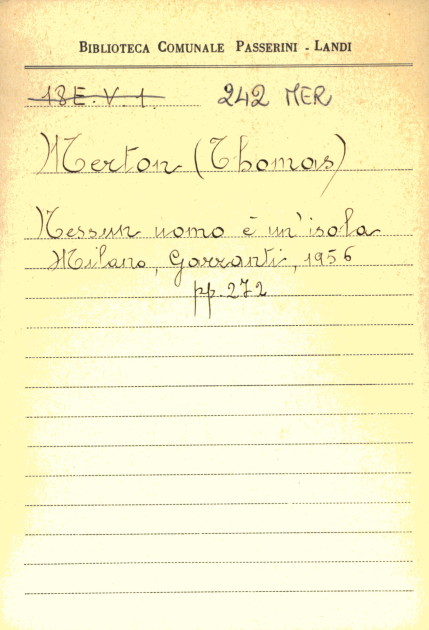 BIBLIOTECA COMUNALE PASSERINI - LANDI
13E.V.1. 242 MER
Merton (Thomas)
Nessun uomo è un'isola
Milano, Garzanti, 1956
pp. 272